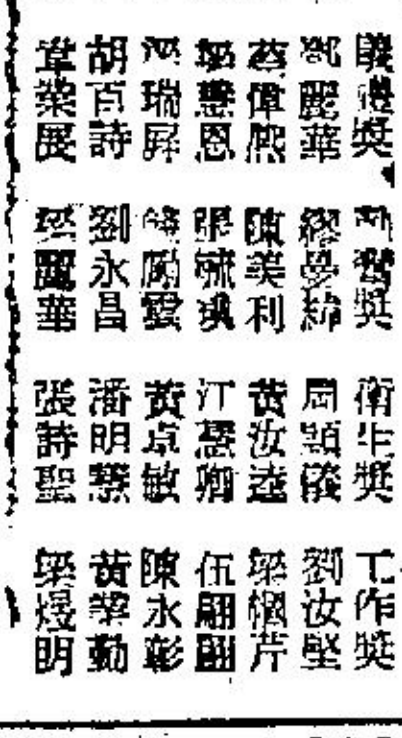 禮獎
鄧麗華
蔡偉熙
慧恩
瑞屏
胡百詩
韋榮展
獎
繆夢
陳美利
張毓
雲
劉永昌
梁麗華
衛生獎
周穎
黃汝達
江慧卿
黃卓敏
潘明慧
張詩聖
工作獎
劉汝堅
梁芹
伍翩翩
陳永彰
黃業勤
梁煜明